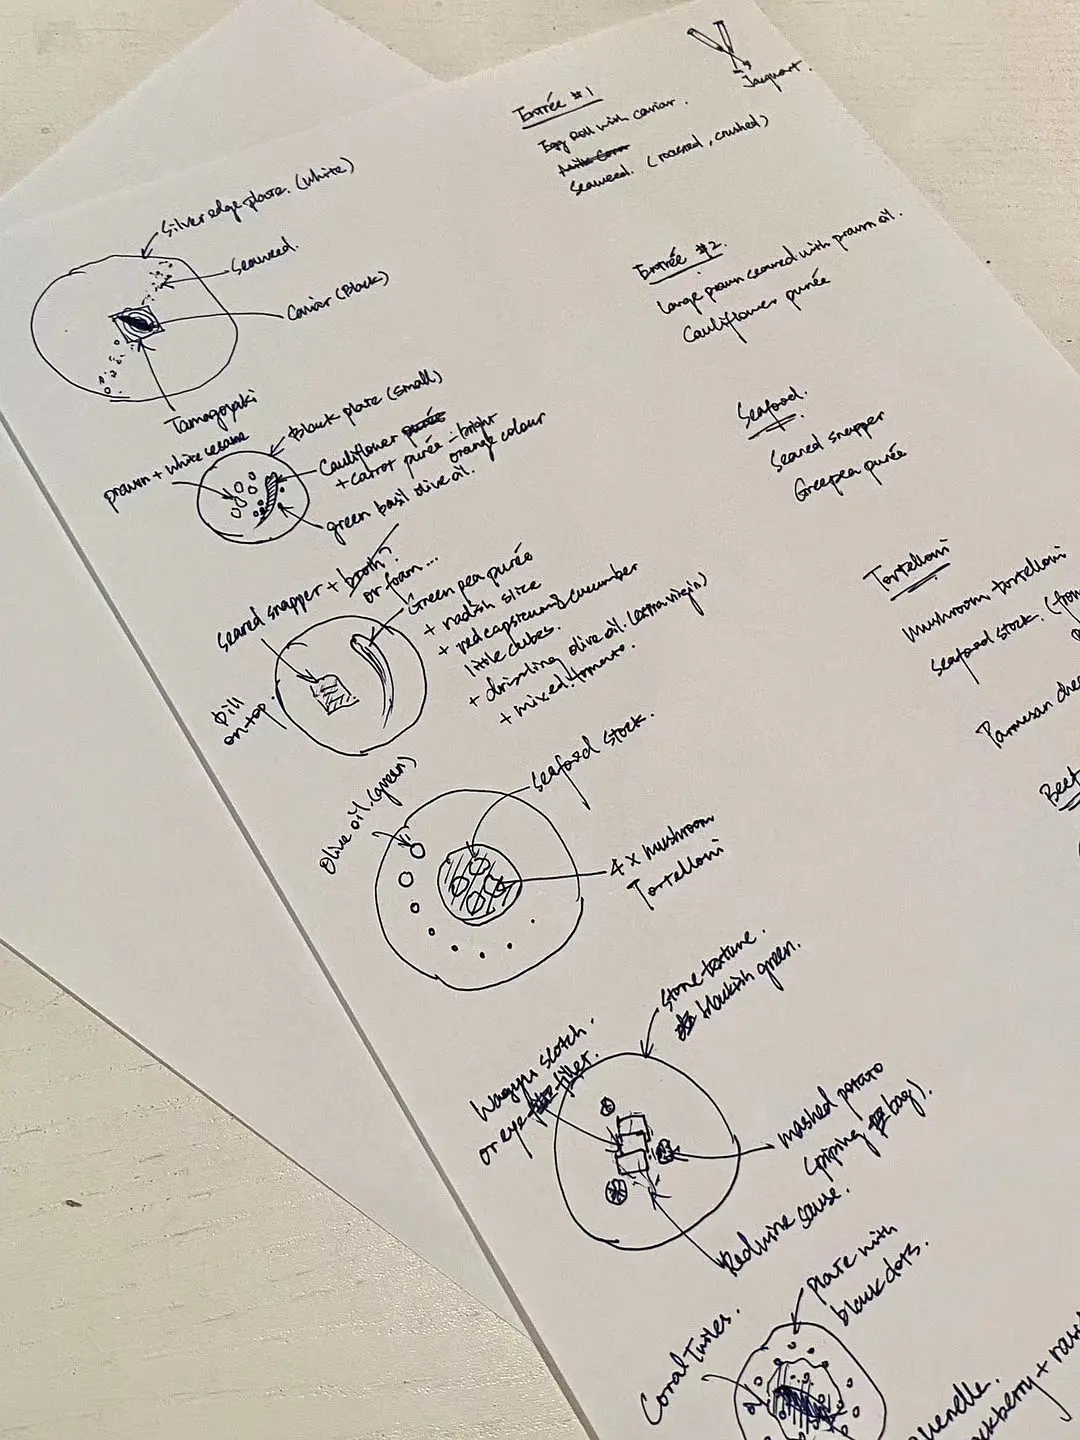 Jacquart.
Entrée #1
Egg Roll with caviar.
Seaweed. (roasted, crushed)
Silver edge plate. (White)
Seaweed.
Caviar (Black)
Tamagoyaki
Entrée #2.
Large prawn seared with prawn oil.
Cauliflower purée
Black plate (small)
prawn + white sesame
Cauliflower purée
+ carrot purée - bright
orange colour
green basil olive oil.
Seafood.
Seared snapper
Greepea purée
Seared snapper + broth?
or foam...
Green pea purée
+ radish slice
+ red capsicum & cucumber
little cubes.
+ drizzling olive oil. (extra virgin)
+ mixed tomato.
Dill
on top.
Tortelloni
Mushroom tortelloni
Seafood stock. (from
Parmesan chee
Olive oil. (green)
Seafood stock.
4x mushroom
Tortelloni
Beef
Stone texture.
blackish green.
Wagyu scotch.
or eye fillet.
mashed potato
(piping bag).
Red wine sause.
plate with
black dots.
Coral Tuiles.
uenelle.
ackberry + rasp